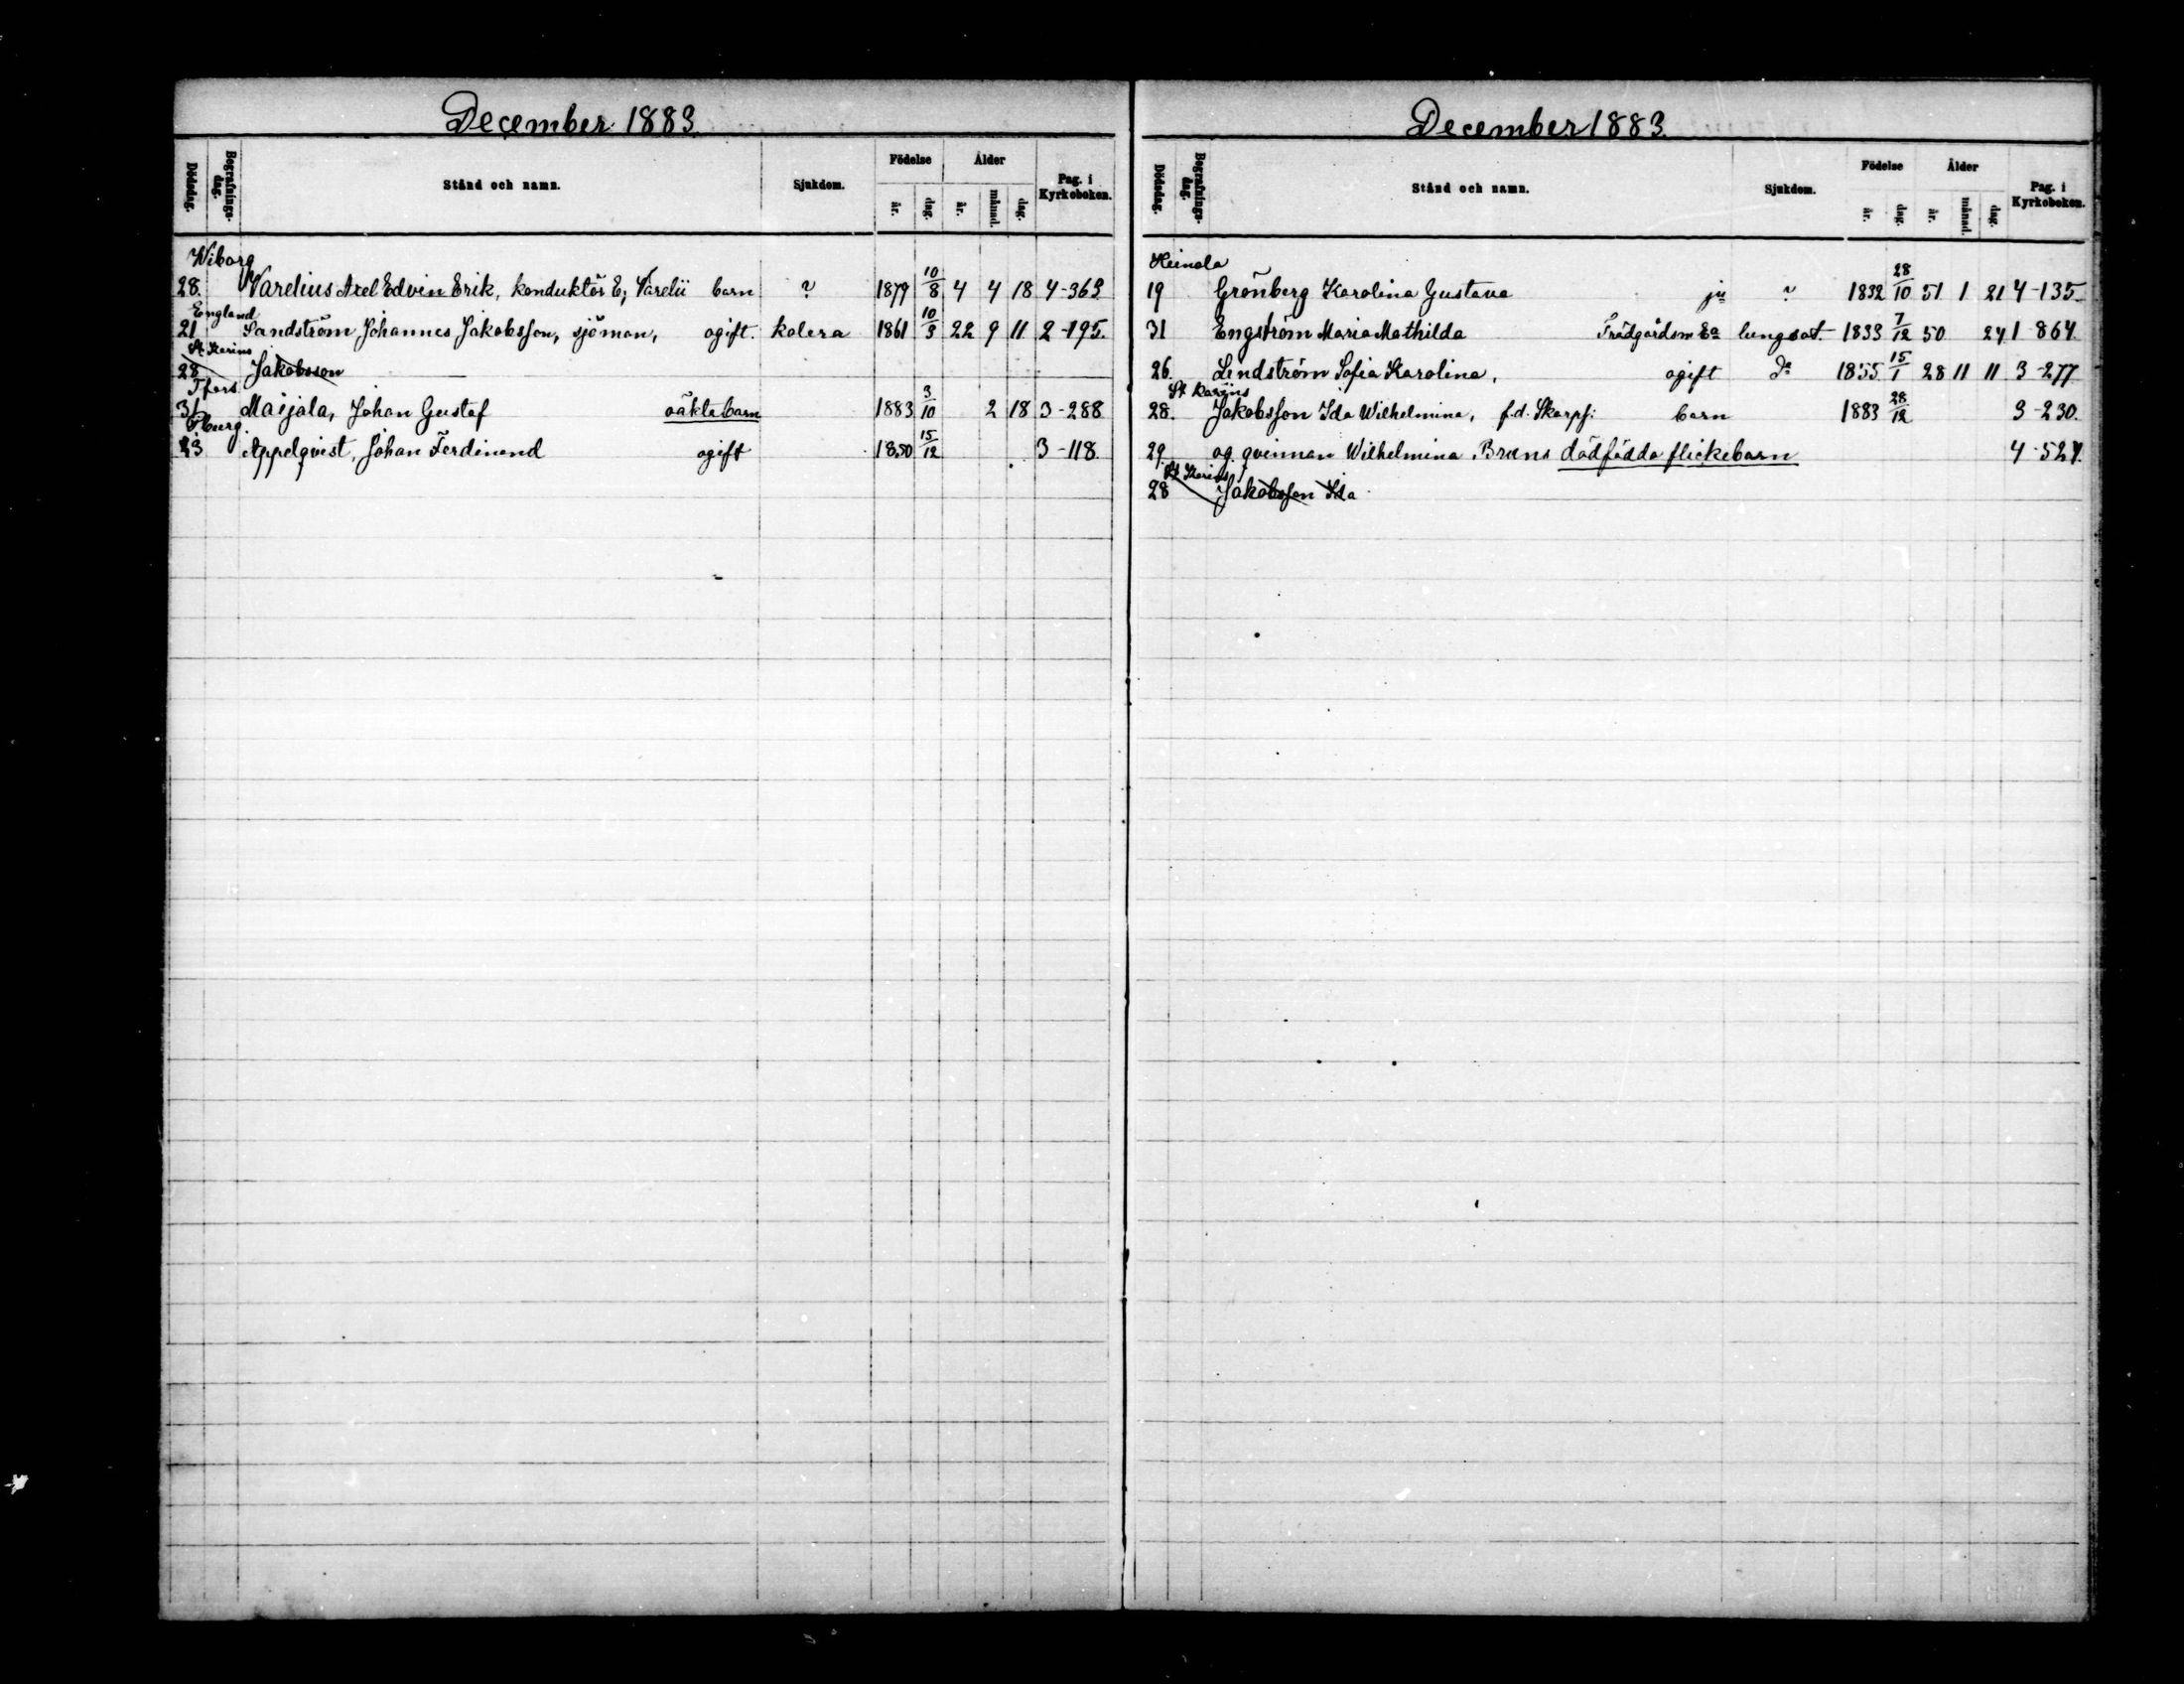 December 1883.
Dödsdag. Begrafnings-dag. Stånd och namn. Sjukdom. Födelse år. dag. Ålder år. månad. dag. Pag. i Kyrkoboken.
Wiborg
28. Varelius Axel Edvin Erik, konduktör E, Varelii barn ? 1879 10/8 4 4 18 4-363
England
21 Sandström, Johannes Jakobsson, sjöman, ogift. kolera 1861 10/3 22 9 11 2-195.
St Karins
28 Jakobsson
Tfors
31 Marjala, Johan Gustaf oäkta barn 1883 3/10 2 18 3-288
23 Appelqvist, Johan Ferdinand ogift 1850 15/12 3-118.
December 1883.
Dödsdag. Begrafnings-dag. Stånd och namn. Sjukdom. Födelse år. dag. Ålder år. månad. dag. Pag. i Kyrkoboken.
Heinola
19 Grönberg Karolina Gustava ? 1832 28/10 51 1 21 4-135.
31 Engström Maria Mathilda Trädgårdsm Ea lungsot. 1833 7/12 50 24 1-864.
26. Lindström Sofia Karolina, ogift Do 1855 15/1 28 11 11 3-277
St Karins
28. Jakobsson Ida Wilhelmina, f.d. Skarpf: barn 1883 28/12 3-230.
29. og. qvinnan Wilhelmina Bruns dödfödda flickebarn 4-527.
St Karins
28 Jakobsson Ida